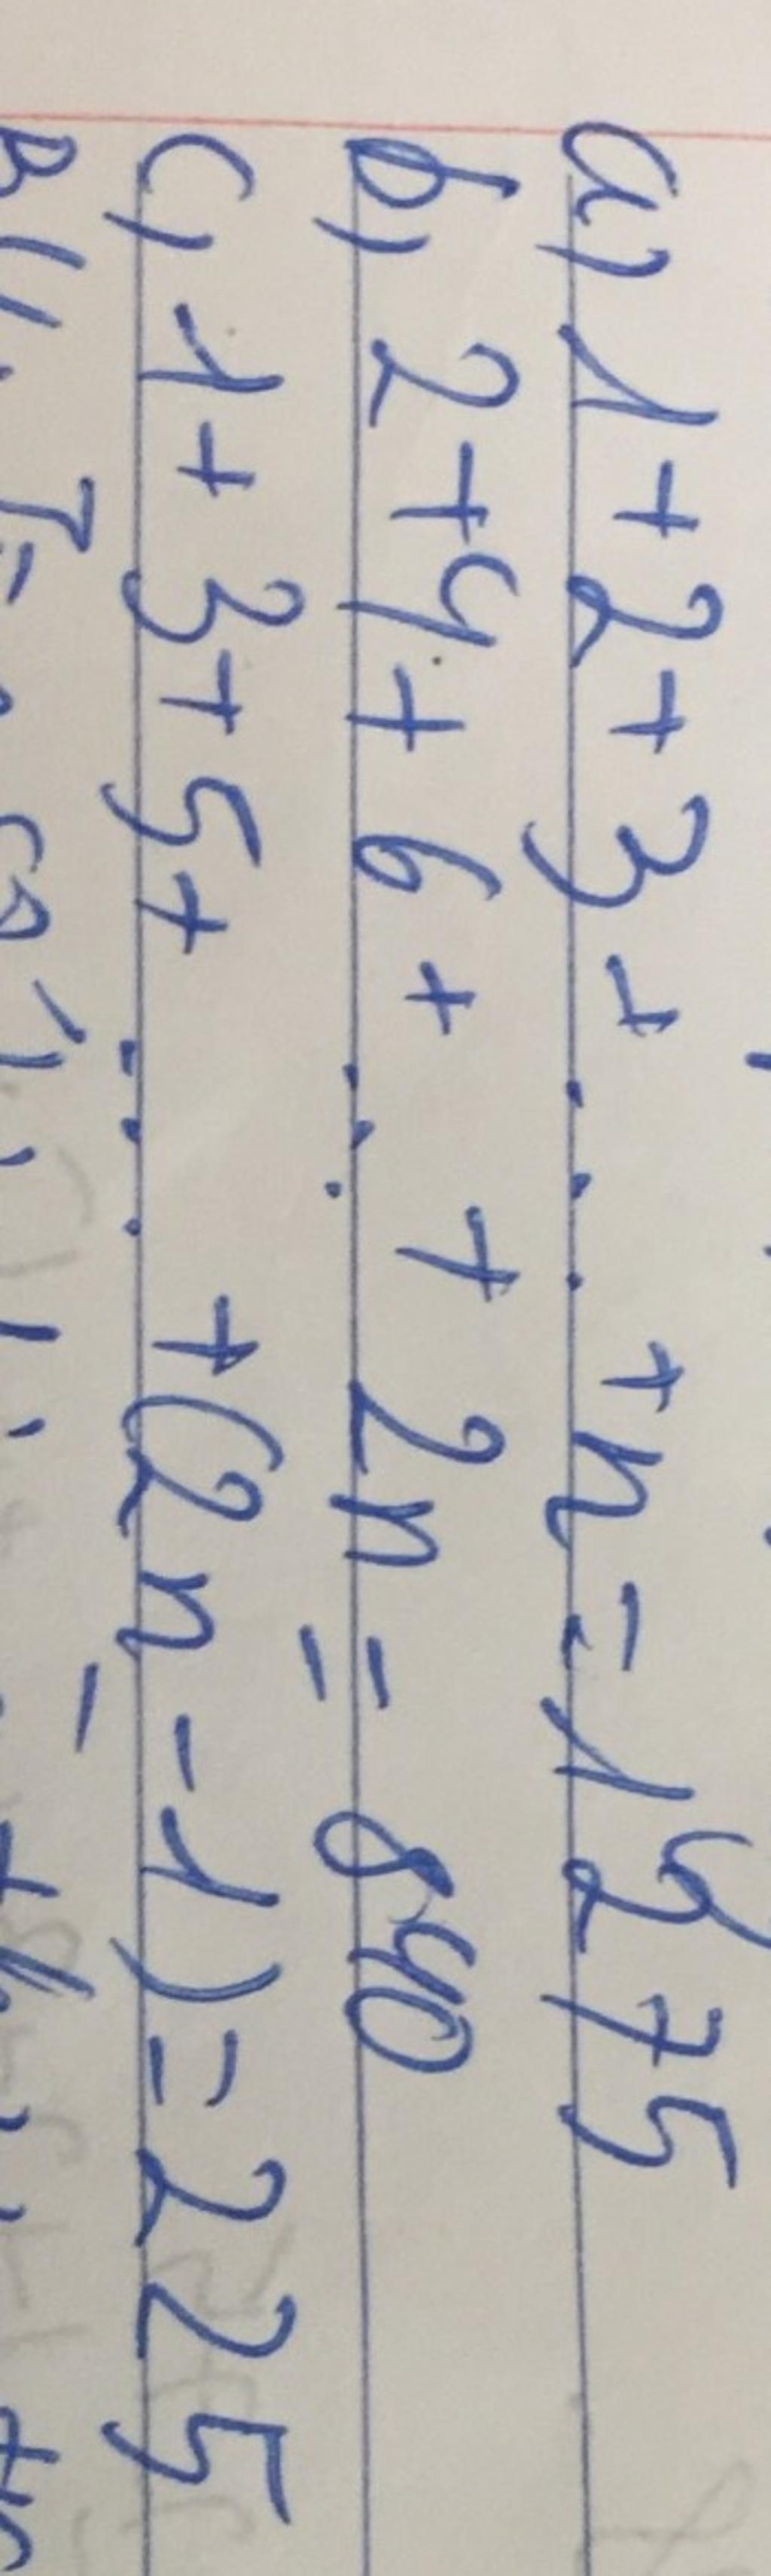 a) 1 + 2 + 3 + . . . + n = 1275
b, 2 + 4 + 6 + . . . + 2n = 840
c, 1 + 3 + 5 + . . . + (2n - 1) = 225